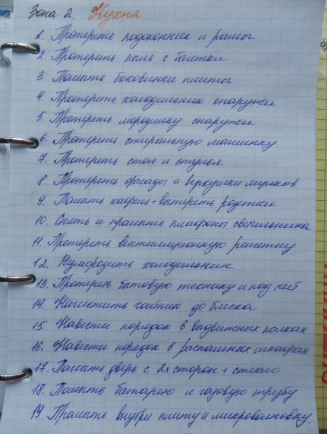 Зона 2. Кухня
1. Протереть подоконник и рамы
2. Протереть полы с
3. Помыть боковинки плиты
4. Протереть холодильник снаружи
5. Протереть морозилку снаружи
6. Протереть стиральную машинку
7. Протереть стол и стулья
8. Протереть фасады и верхушки
9. Помыть кафель+вытереть
10. Снять и промыть плафоны светильника
11. Протереть вентиляционную решетку
12. Разморозить холодильник
13. Протереть бытовую технику и под ней
14. Начистить чайник до блеска
15. Навести порядок в выдвижных полках
16. Навести порядок в распашных шкафах
17. Помыть дверь с 2х сторон + стекло
18. Помыть батарею и газовую трубу
19. Промыть внутри плиту и микроволновку